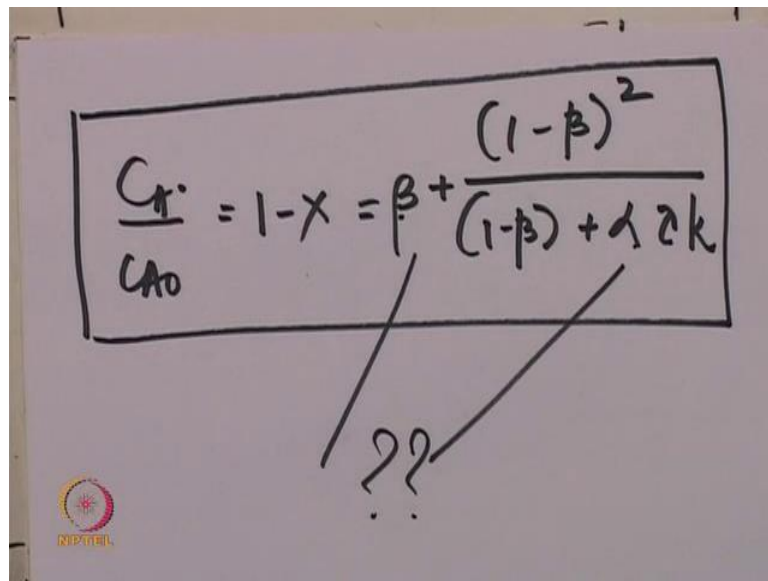 C_A / C_A0 = 1 - X = β + (1 - β)² / ((1-β) + α τ k)
??
NPTEL